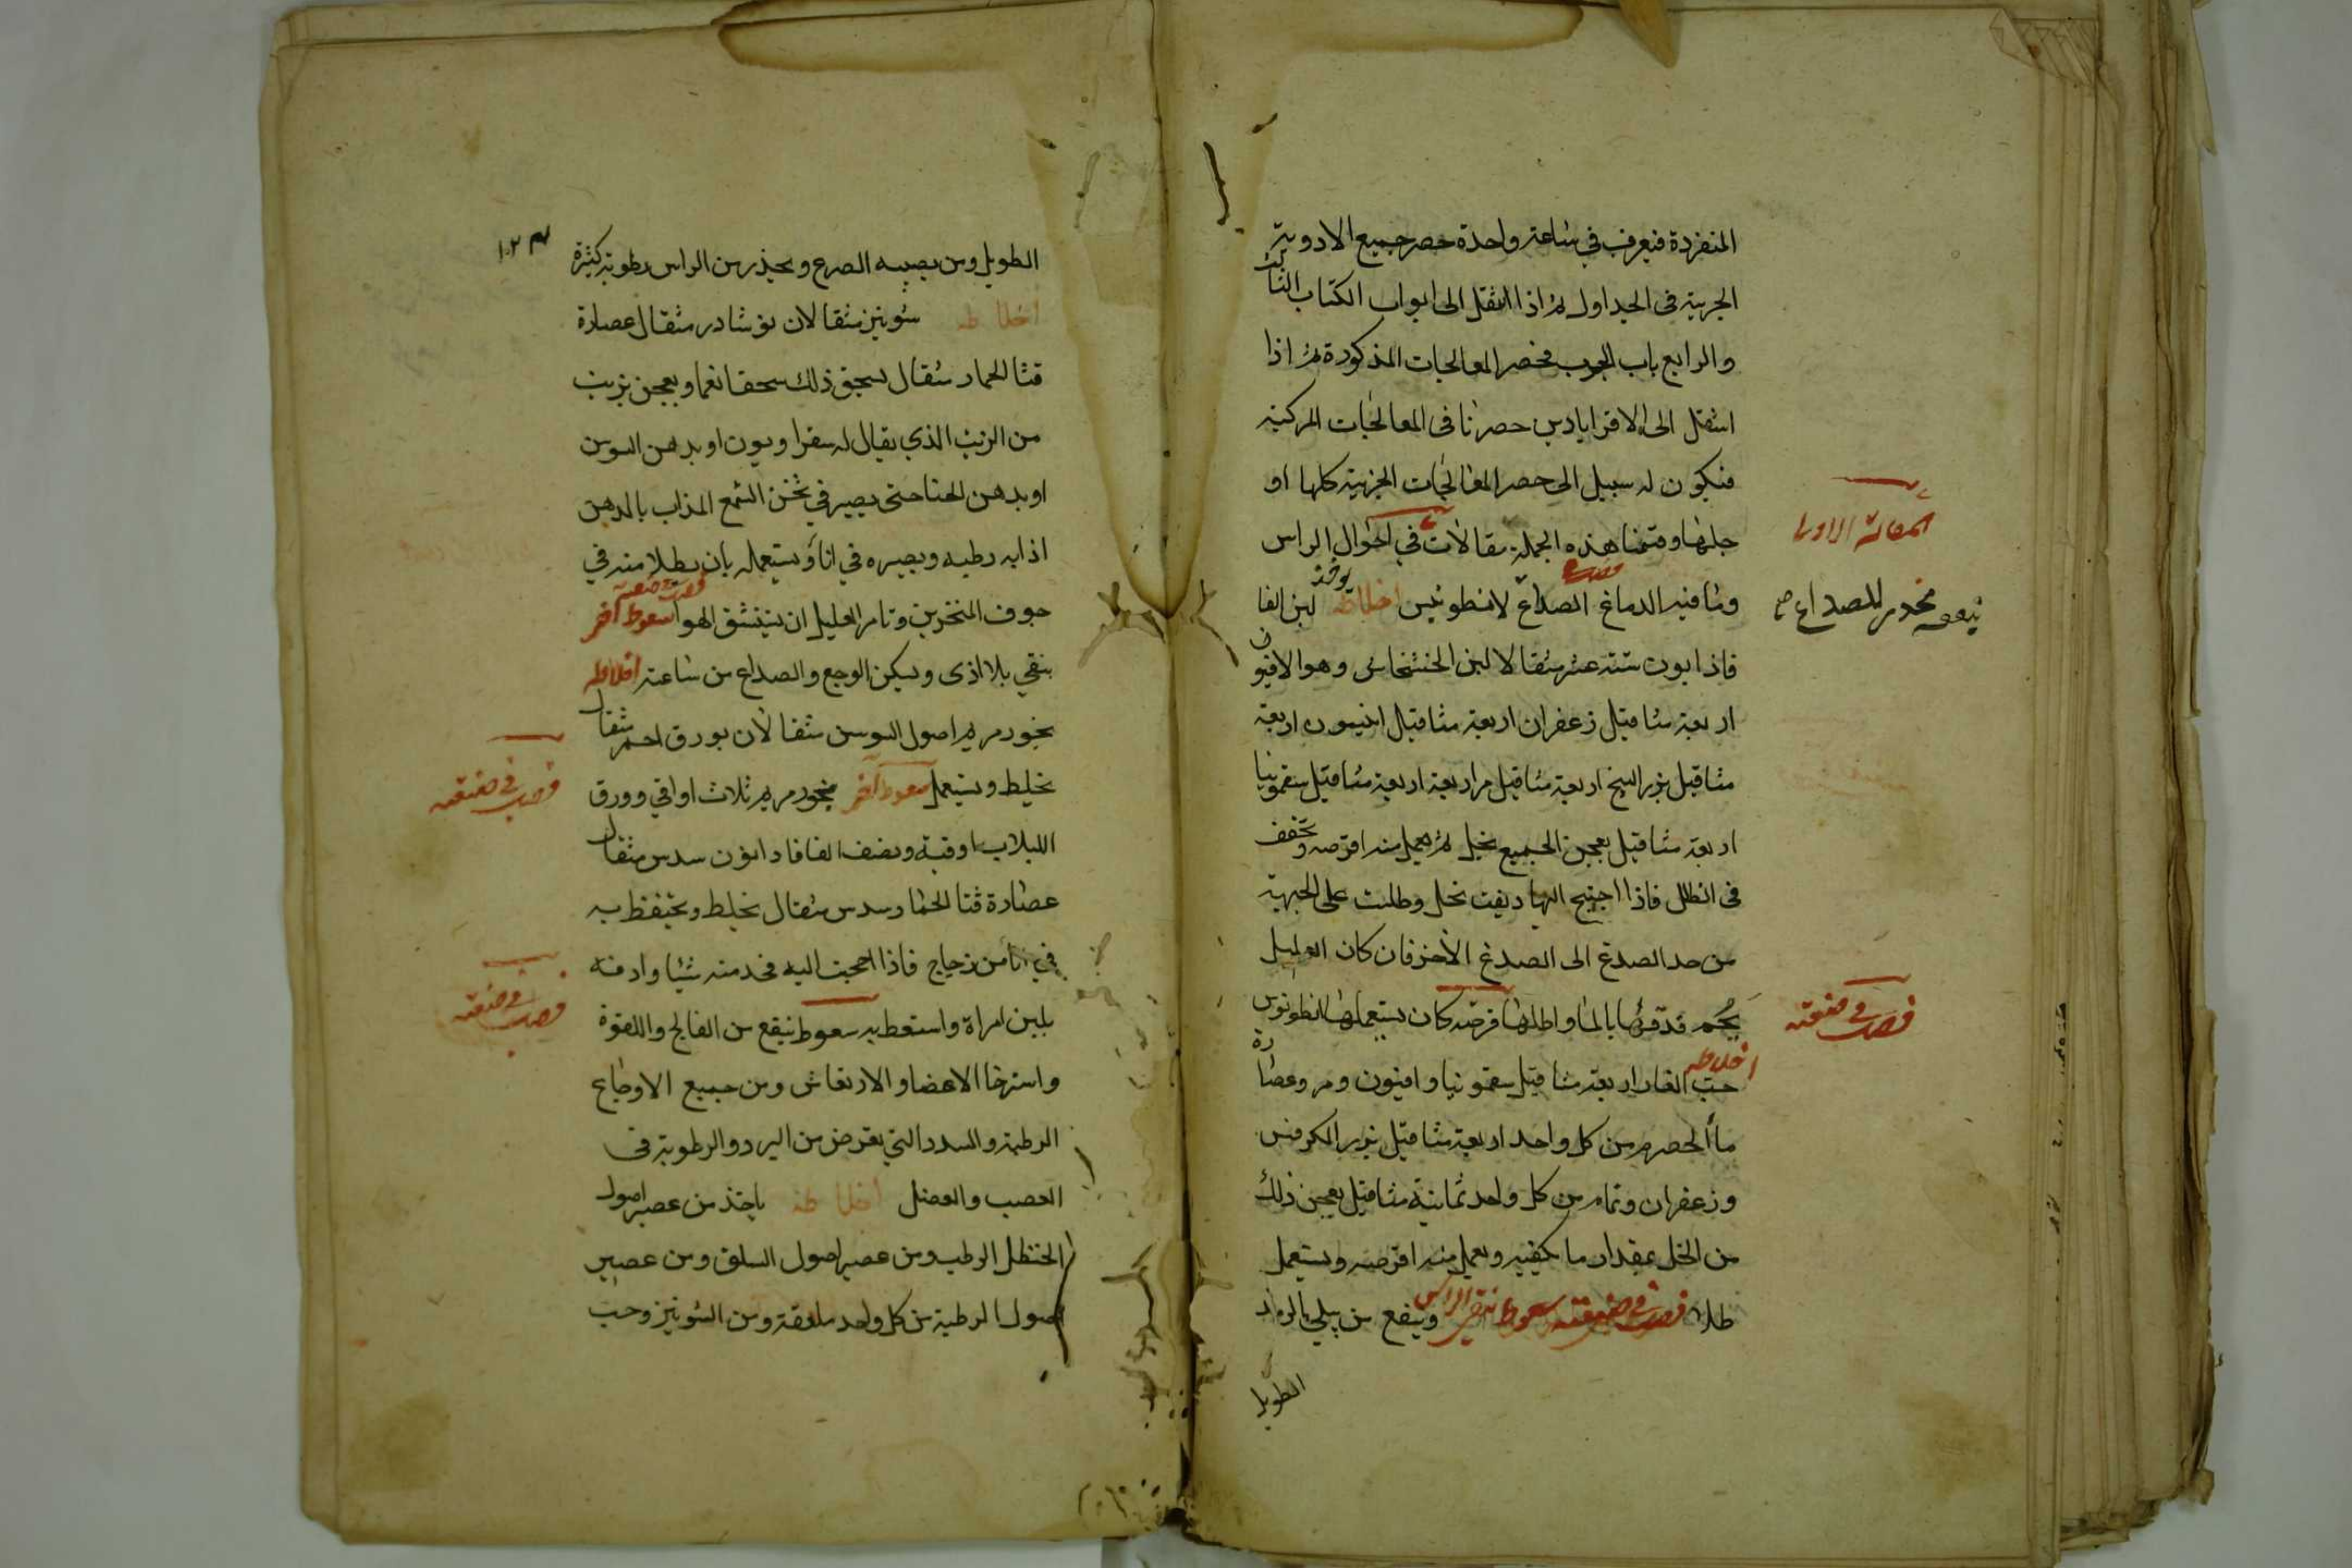 المنفردة فيعرف في ساعة واحدة حصر جميع الادوية
الجزية في الجداول ثم اذا انتقل الى ابواب الكتاب الثالث
والرابع باب حصر المعالجات المذكورة ثم اذا
انتقل الى الاقراباديں حصرنا في المعالجات المركبة
فيكون له سبيل الى حصر المعالجات الجزئية كلها او
جلها وقسمنا هذه الجملة مقالات في احوال الراس
المقالة الاولى
وما فيه الدماغ الصداع لانطونيس اخلاطه يوخذ لبن الفا
مخدر للصداع
فاذا بيون ستة عشر مثقالا لبن الخشخاش وهو الافيون
اربعة مثاقيل زعفران اربعة مثاقيل انيسون اربعة
مثاقيل بزر البنج اربعة مثاقيل مر اربعة اربعة مثاقيل سقمونيا
اربعة مثاقيل يعجن الجميع بخل ثم يعمل منه اقرصه وتجفف
في الظل فاذا احتيج اليها ديفت بخل وطليت على الجبهة
من حد الصدغ الى الصدغ الاخر فان كان العليل
يحم فدقها بالما واطلها قرصه كان يستعملها انطونوس
قرصة في صنعته
اخلاطه
حب الغار اربعة مثاقيل سقمونيا وافيون ومر وعصارة
ماء الحصرم من كل واحد اربعة مثاقيل بزر الكرفس
وزعفران ونمام من كل واحد ثمانية مثاقيل يعجن ذلك
من الخل بمقدار ما يكفيه ويعمل منه اقرصه ويستعمل
طلاء قرصة في صنعته سعوط ينقي الراس وينفع من يبلي بالرمد
الطويل
١٠٢
الطويل ومن يصيبه الصرع ويحذر من الراس رطوبة كثيرة
اخلاطه شونيز مثقالان نوشادر مثقال عصارة
قثا الحمار مثقال يسحق ذلك سحقا نعما ويعجن بزيت
من الزيت الذي يقال له سقراويون او بدهن السوسن
او بدهن الحنا حتى يصير في ثخن الشمع المذاب بالدهن
اذابه رطبه ويصيره في اناء ويستعمله بان يطلا منه في
جوف المنخرين وتامر العليل ان يستنشق الهوا سعوط اخر
ينقي بلا اذى ويسكن الوجع والصداع من ساعته اخلاطه
بخور مريم اصول السوسن مثقالان بورق احمر مثقال
يخلط ويستعمل سعوط اخر بخور مريم ثلاث اواقي وورق
قرصة في صنعته
اللبلاب اوقية ونصف سدس مثقال
عصارة قثا الحمار سدس مثقال يخلط ويحتفظ به
في اناء من زجاج فاذا احتجت اليه فخد منه شيئا وادفه
بلبن امراة واستعط به سعوط ينفع من الفالج واللقوة
قرصة في صنعته
واسترخا الاعضا والارتعاش ومن جميع الاوجاع
الرطبة والسدد التي تعرض من البرد والرطوبة في
العصب والعضل اخلاطه ياخذ من عصير اصول
الحنظل الرطب ومن عصير اصول السلق ومن عصير
اصول الرطبة من كل واحد ملعقة ومن الشونيز وحب